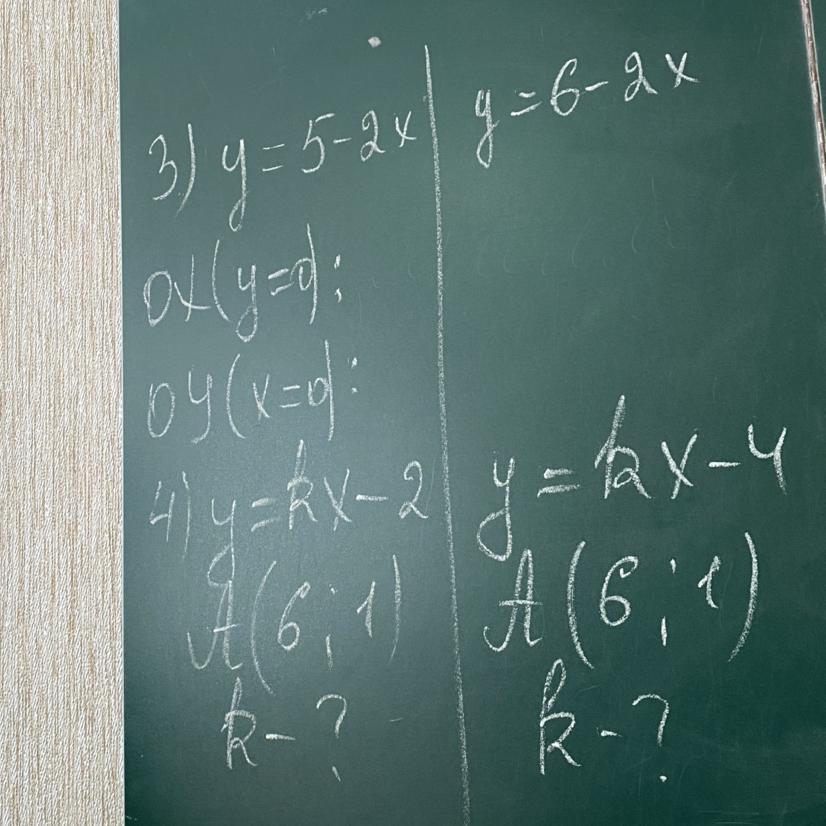 3) y = 5 - 2x
ox (y = 0) :
oy (x = 0) :
4) y = kx - 2
A (6 ; 1)
k - ?
y = 6 - 2x
y = kx - 4
A (6 ; 1)
k - ?